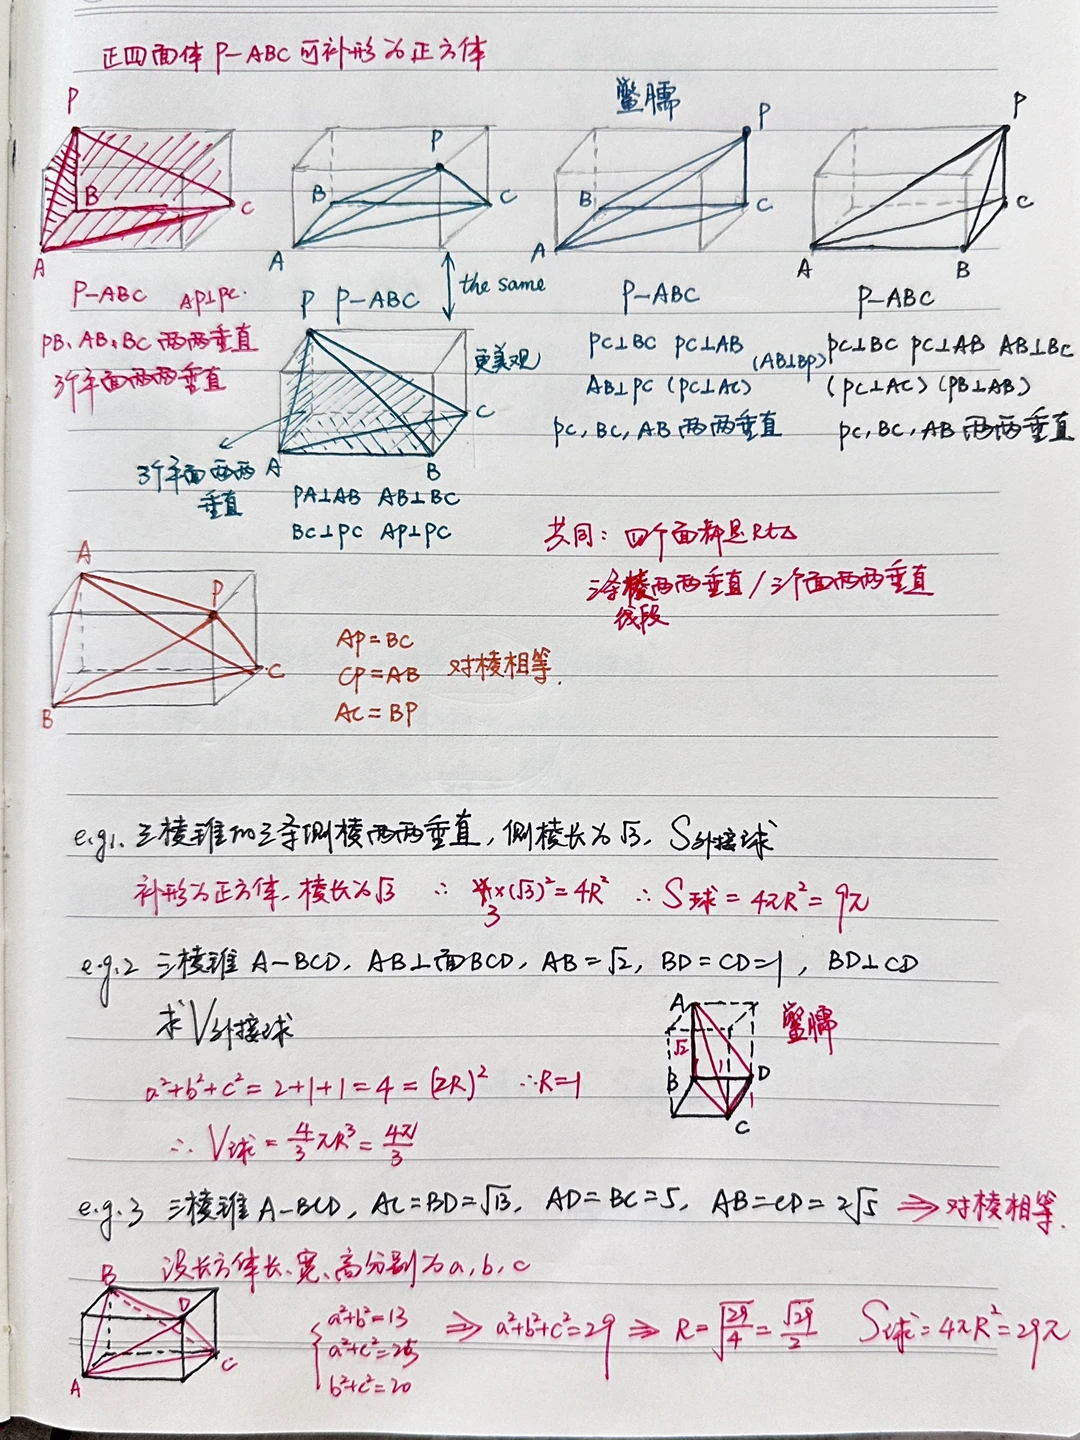 正四面体 P-ABC 可补形为正方体
鳖臑
P
B
C
A
P
B
C
A
P
B
C
A
P
C
A
B
P-ABC AP⊥PC.
PB、AB、BC 两两垂直
3个平面两两垂直
P P-ABC
the same
更美观
C
A
B
3个平面两两垂直
PA⊥AB AB⊥BC
BC⊥PC AP⊥PC
P-ABC
PC⊥BC PC⊥AB (AB⊥BP)
AB⊥PC (PC⊥AC)
PC, BC, AB 两两垂直
P-ABC
PC⊥BC PC⊥AB AB⊥BC
(PC⊥AC) (PB⊥AB)
PC, BC, AB 两两垂直
共同: 四个面都是Rt△
三条棱两两垂直/三个面两两垂直
线段
A
P
C
B
AP=BC
CP=AB 对棱相等.
AC=BP
e.g1. 三棱锥的三条侧棱两两垂直, 侧棱长为√3, S外接球
补形为正方体. 棱长为√3 ∴ 3×(√3)²=4R² ∴S球=4πR²=9π
e.g.2 三棱锥 A-BCD, AB⊥面BCD, AB=√2, BD=CD=1, BD⊥CD
求V外接球
A
√2
B
D
1
1
C
鳖臑
a²+b²+c²=2+1+1=4=(2R)² ∴R=1
∴ V球=4/3πR³=4π/3
e.g.3 三棱锥A-BCD, AC=BD=√13, AD=BC=5, AB=CD=2√5 ⇒对棱相等.
设长方体长、宽、高分别为a, b, c
B
D
C
A
{a²+b²=13
a²+c²=25
b²+c²=20
⇒ a²+b²+c²=29 ⇒ R=√29/4=√29/2 S球=4πR²=29π